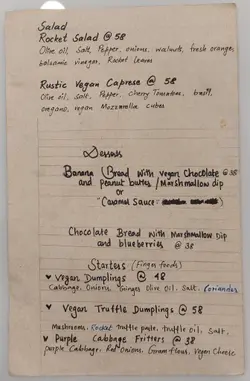 Salad
Rocket Salad @ 58
Olive oil, Salt, Pepper, onions, walnuts, fresh orange,
balsamic vinegar, Rocket leaves
Rustic Vegan Caprese @ 58
Olive oil, salt, Pepper, Cherry Tomatoes, basil,
oregano, vegan Mozzarella cubes
Desserts
Banana Bread with vegan Chocolate @ 38
and peanut butter / Marshmallow dip
or
"Caramel Sauce:
Chocolate Bread with Marshmallow Dip
and blueberries @ 38
Starters (Finger foods)
♥ Vegan Dumplings @ 48
Cabbage, Onions, Ginger, Olive Oil, Salt, Coriander
♥ Vegan Truffle Dumplings @ 58
Mushrooms, Rocket, truffle paste, truffle oil, Salt,
♥ Purple Cabbage Fritters @ 38
purple Cabbage, Red Onions, Gram flour, Vegan Cheese